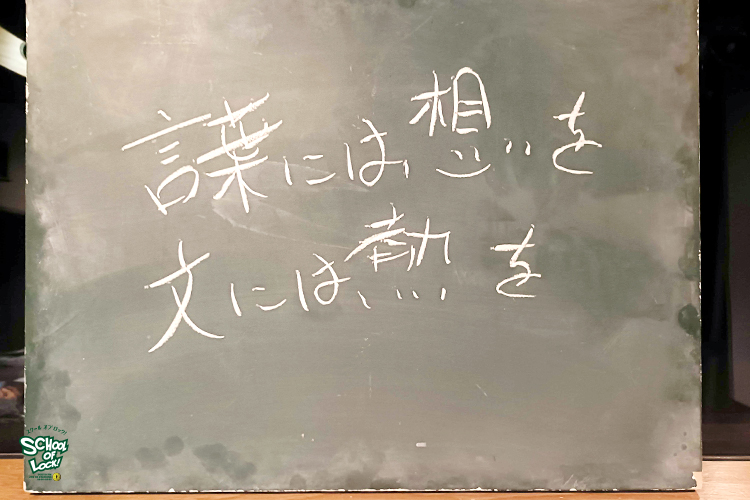 言葉には、想いを
文には、熱を
スクールオブロック!
SCHOOL
OF
LOCK!